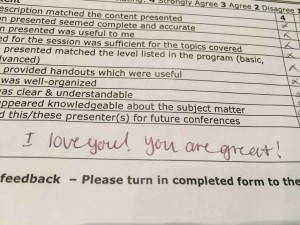 4 Strongly Agree 3 Agree 2 Disagree
4
escription matched the content presented
on presented seemed complete and accurate
n presented was useful to me
ed for the session was sufficient for the topics covered
presented matched the level listed in the program (basic,
dvanced)
provided handouts which were useful
was well-organized
was clear & understandable
appeared knowledgeable about the subject matter
d this/these presenter(s) for future conferences
I love you! you are great!
feedback – Please turn in completed form to the